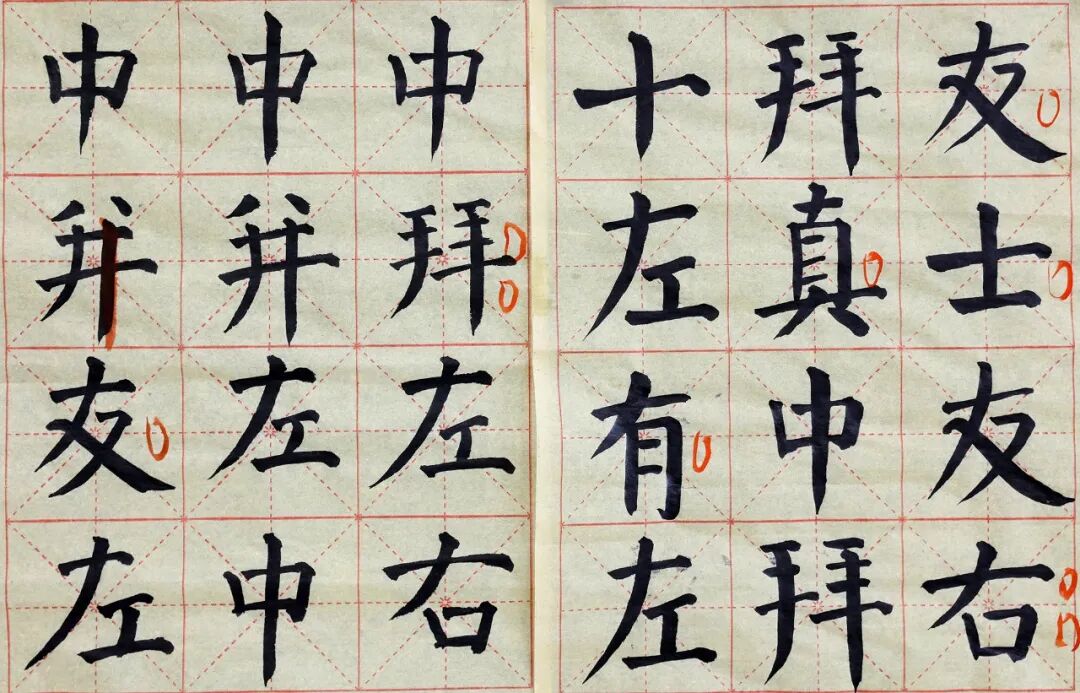 中中中
并并拜
友左左
左中右
十拜友
左真士
有中友
左拜右